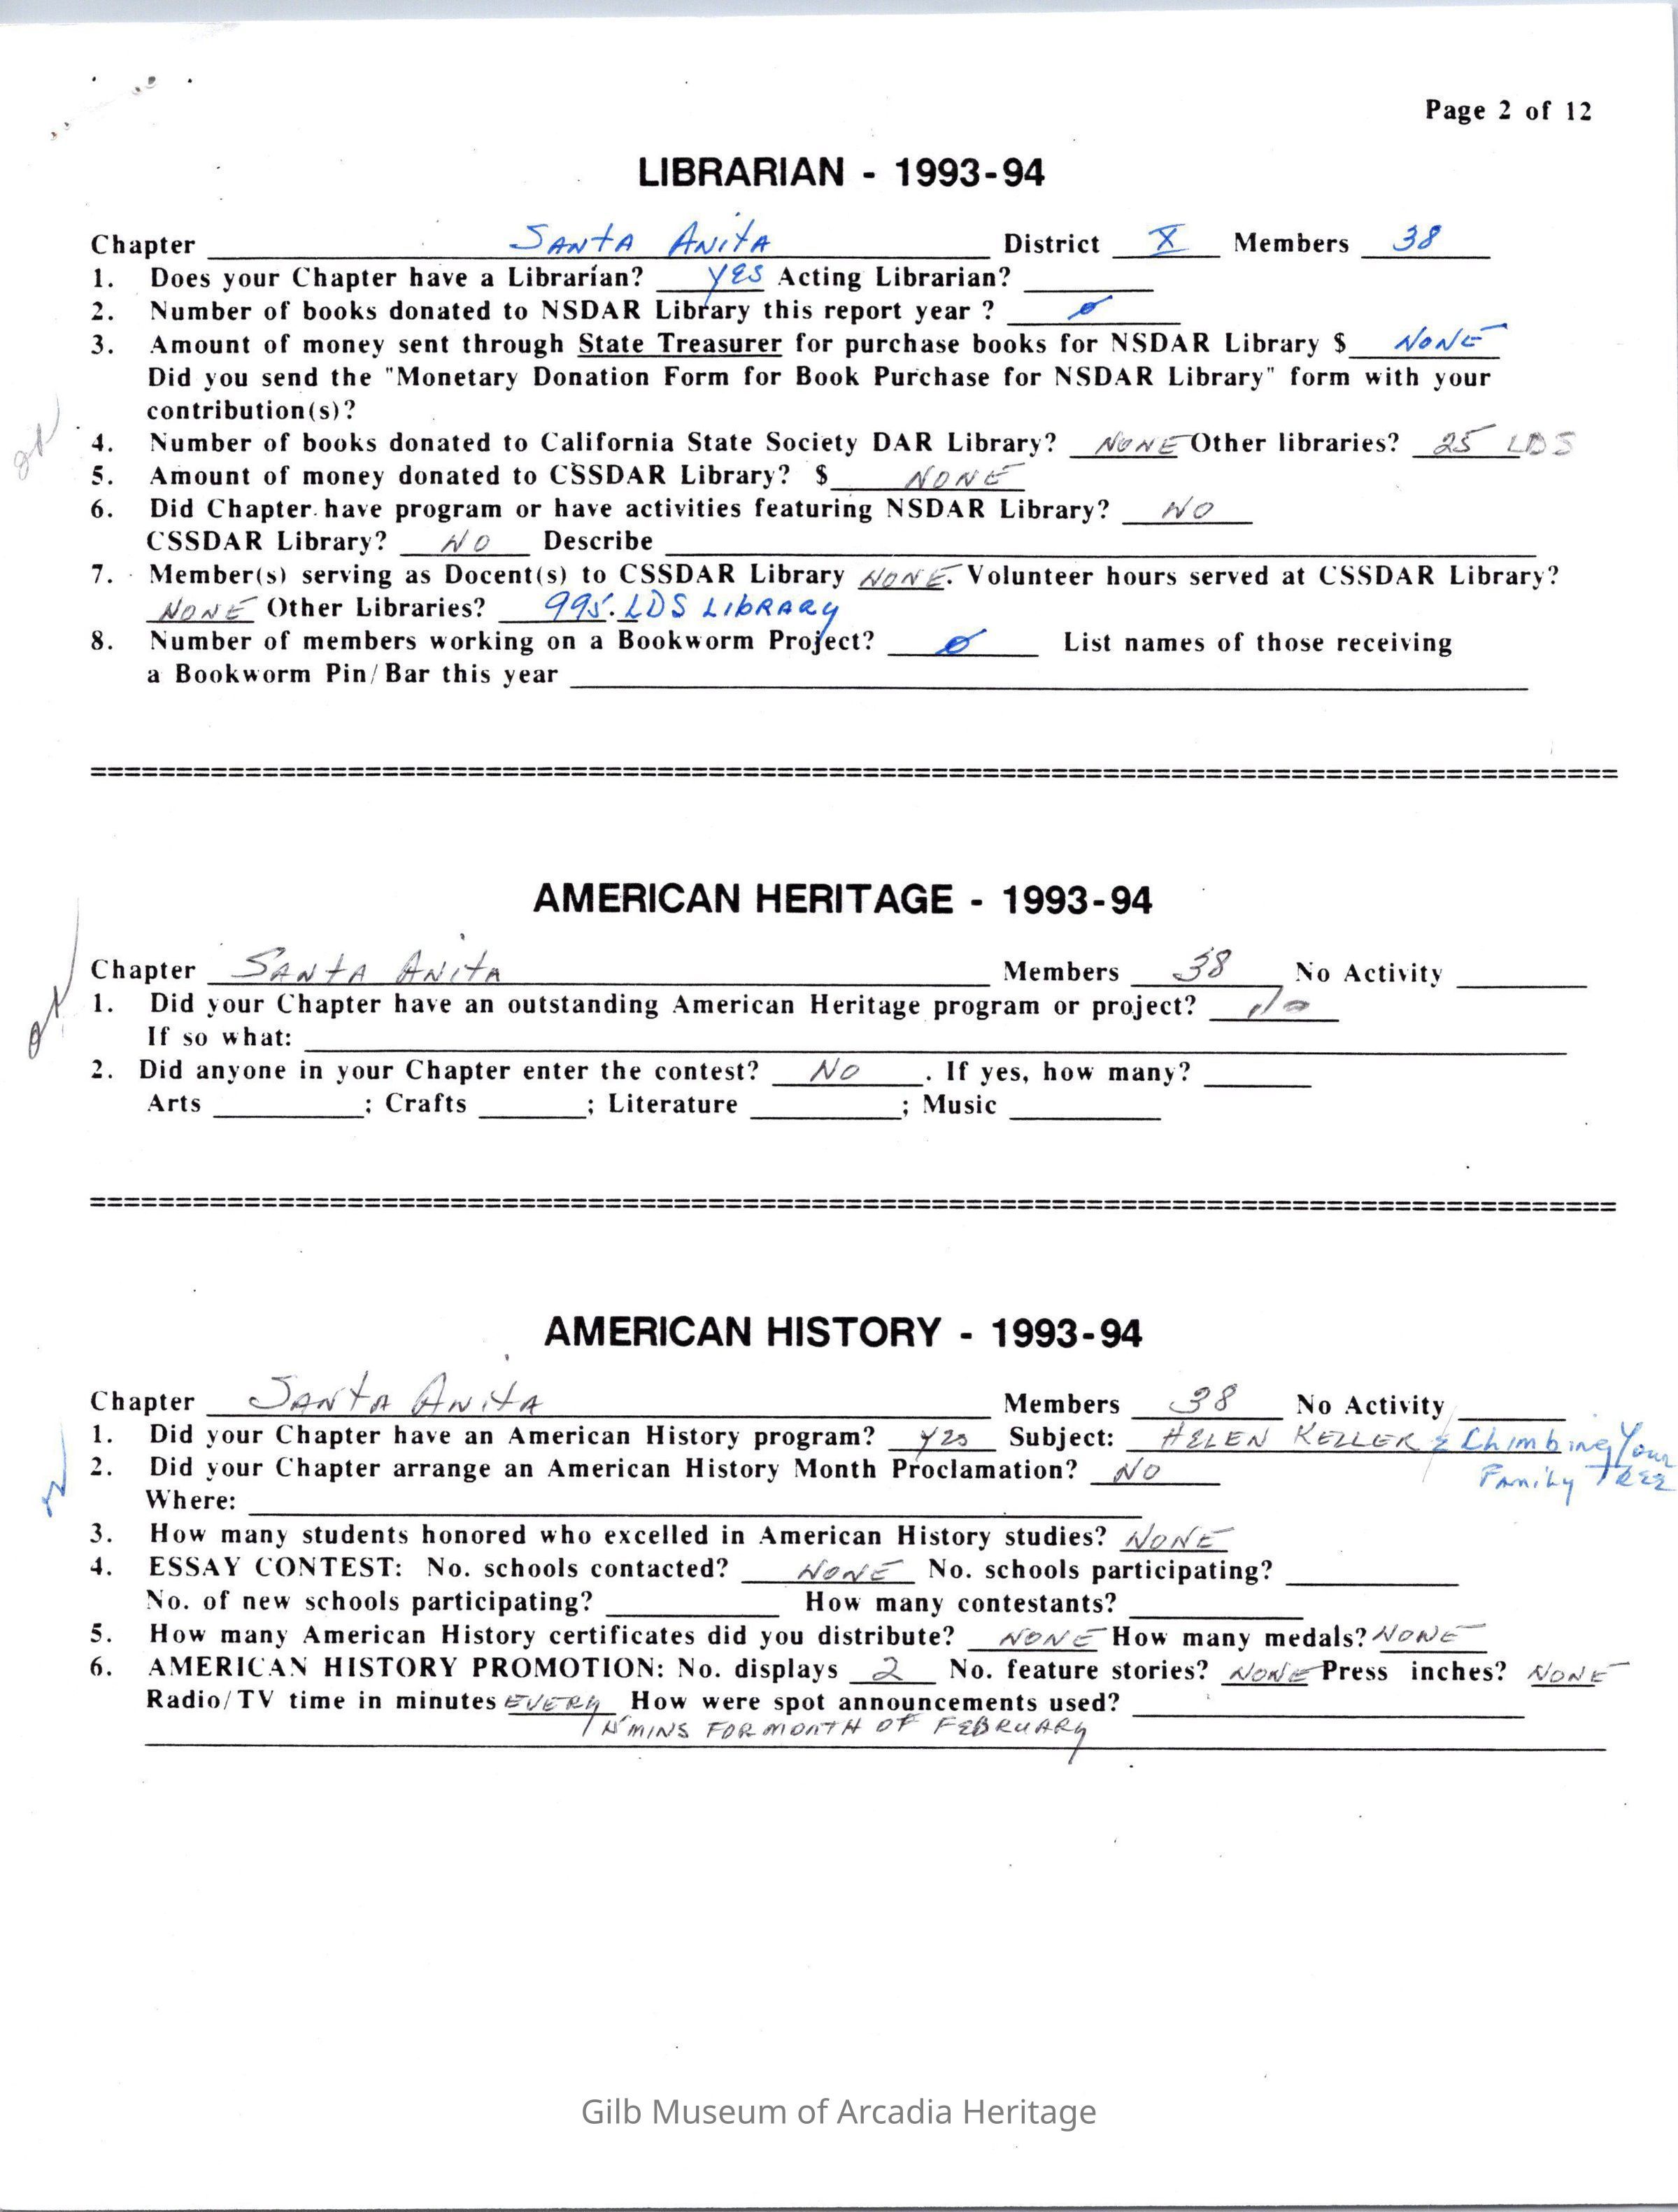 Page 2 of 12
LIBRARIAN - 1993-94
Chapter SANTA ANITA District X Members 38
1. Does your Chapter have a Librarian? YES Acting Librarian?
2. Number of books donated to NSDAR Library this report year ? ø
3. Amount of money sent through State Treasurer for purchase books for NSDAR Library $ NONE
Did you send the "Monetary Donation Form for Book Purchase for NSDAR Library" form with your
contribution(s)?
4. Number of books donated to California State Society DAR Library? NONE Other libraries? 25 LDS
5. Amount of money donated to CSSDAR Library? $ NONE
6. Did Chapter have program or have activities featuring NSDAR Library? NO
CSSDAR Library? NO Describe
7. Member(s) serving as Docent(s) to CSSDAR Library NONE. Volunteer hours served at CSSDAR Library?
NONE Other Libraries? 995. LDS LIBRARY
8. Number of members working on a Bookworm Project? ø List names of those receiving
a Bookworm Pin/Bar this year
AMERICAN HERITAGE - 1993-94
Chapter SANTA ANITA Members 38 No Activity
1. Did your Chapter have an outstanding American Heritage program or project? no
If so what:
2. Did anyone in your Chapter enter the contest? NO . If yes, how many?
Arts ; Crafts ; Literature ; Music
AMERICAN HISTORY - 1993-94
Chapter SANTA ANITA Members 38 No Activity
1. Did your Chapter have an American History program? YES Subject: HELEN KELLER & Chimbing Your
Family TREE
2. Did your Chapter arrange an American History Month Proclamation? NO
Where:
3. How many students honored who excelled in American History studies? NONE
4. ESSAY CONTEST: No. schools contacted? NONE No. schools participating?
No. of new schools participating? How many contestants?
5. How many American History certificates did you distribute? NONE How many medals? NONE
6. AMERICAN HISTORY PROMOTION: No. displays 2 No. feature stories? NONE Press inches? NONE
Radio/TV time in minutes EVERY How were spot announcements used?
MINS FOR MONTH OF FEBRUARY
Gilb Museum of Arcadia Heritage